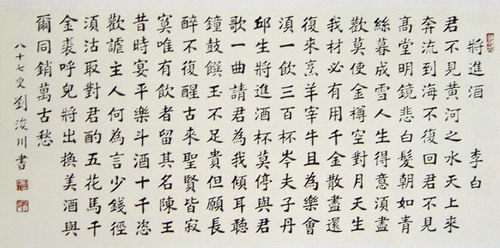 將進酒 李白
君不見黃河之水天上來
奔流到海不復回君不見
高堂明鏡悲白髮朝如青
絲暮成雪人生得意須盡
歡莫使金樽空對月天生
我材必有用千金散盡還
復來烹羊宰牛且為樂會
湏一飲三百杯岑夫子丹
邱生將進酒杯莫停與君
歌一曲請君為我傾耳聽
鐘鼓饌玉不足貴但願長
醉不復醒古來聖賢皆寂
寞唯有飲者留其名陳王
昔時宴平樂斗酒十千恣
歡謔主人何為言少錢徑
湏沽取對君酌五花馬千
金裘呼兒將出換美酒與
爾同銷萬古愁
八十七叟劉浚川書